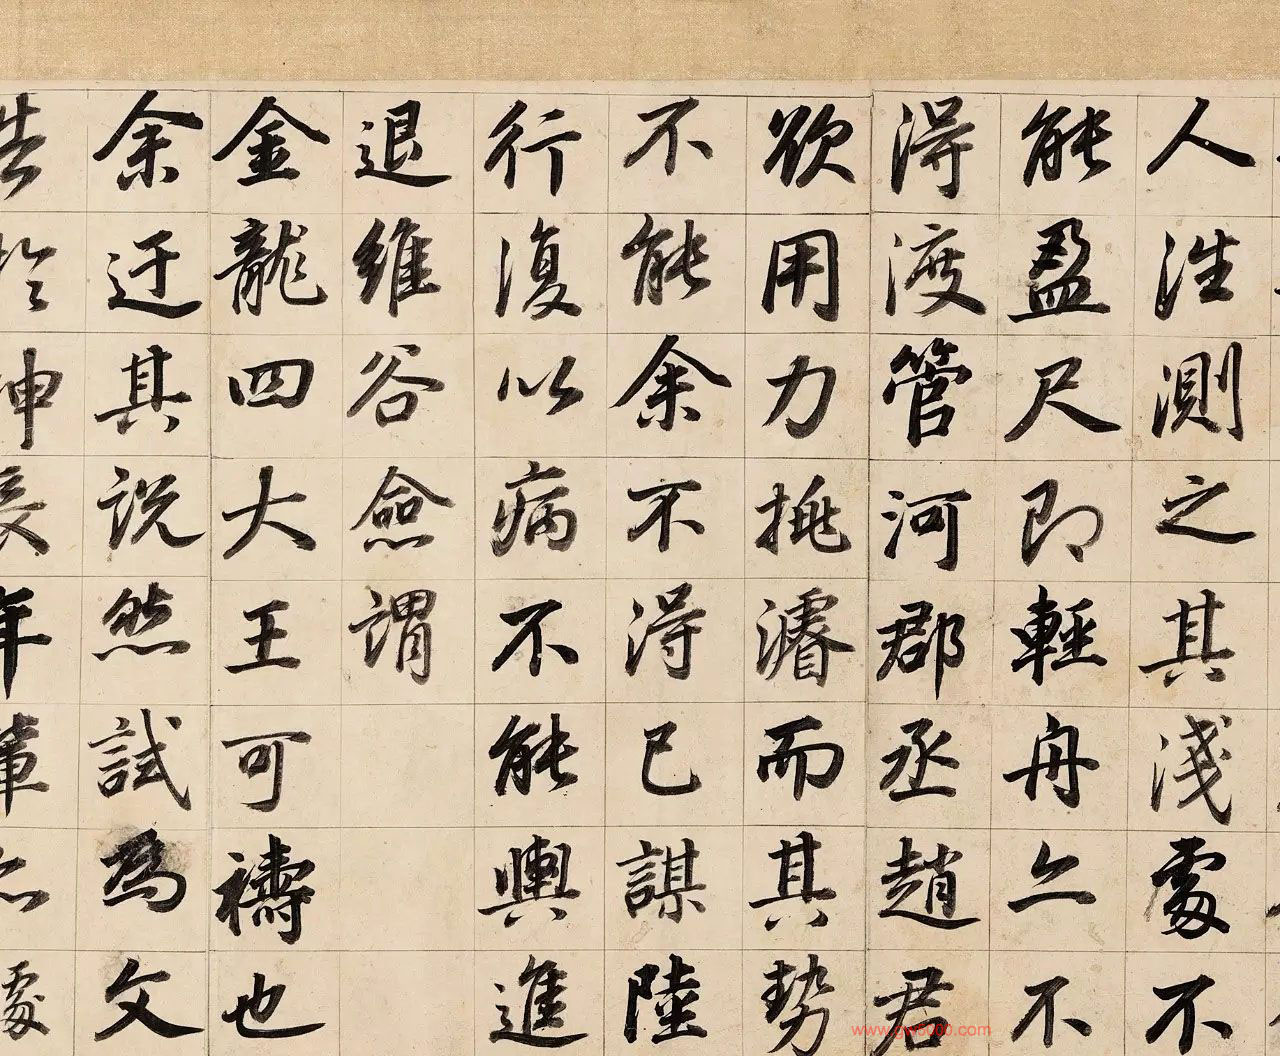 人往測之其淺處不
能盈尺即輕舟亦不
得渡管河郡丞趙君
欲用力挑濬而其勢
不能余不得已謀陸
行復以病不能輿進
退維谷僉謂
金龍四大王可禱也
余迂其說然試為文
告於神長年輩亦處
www.gw5000.com